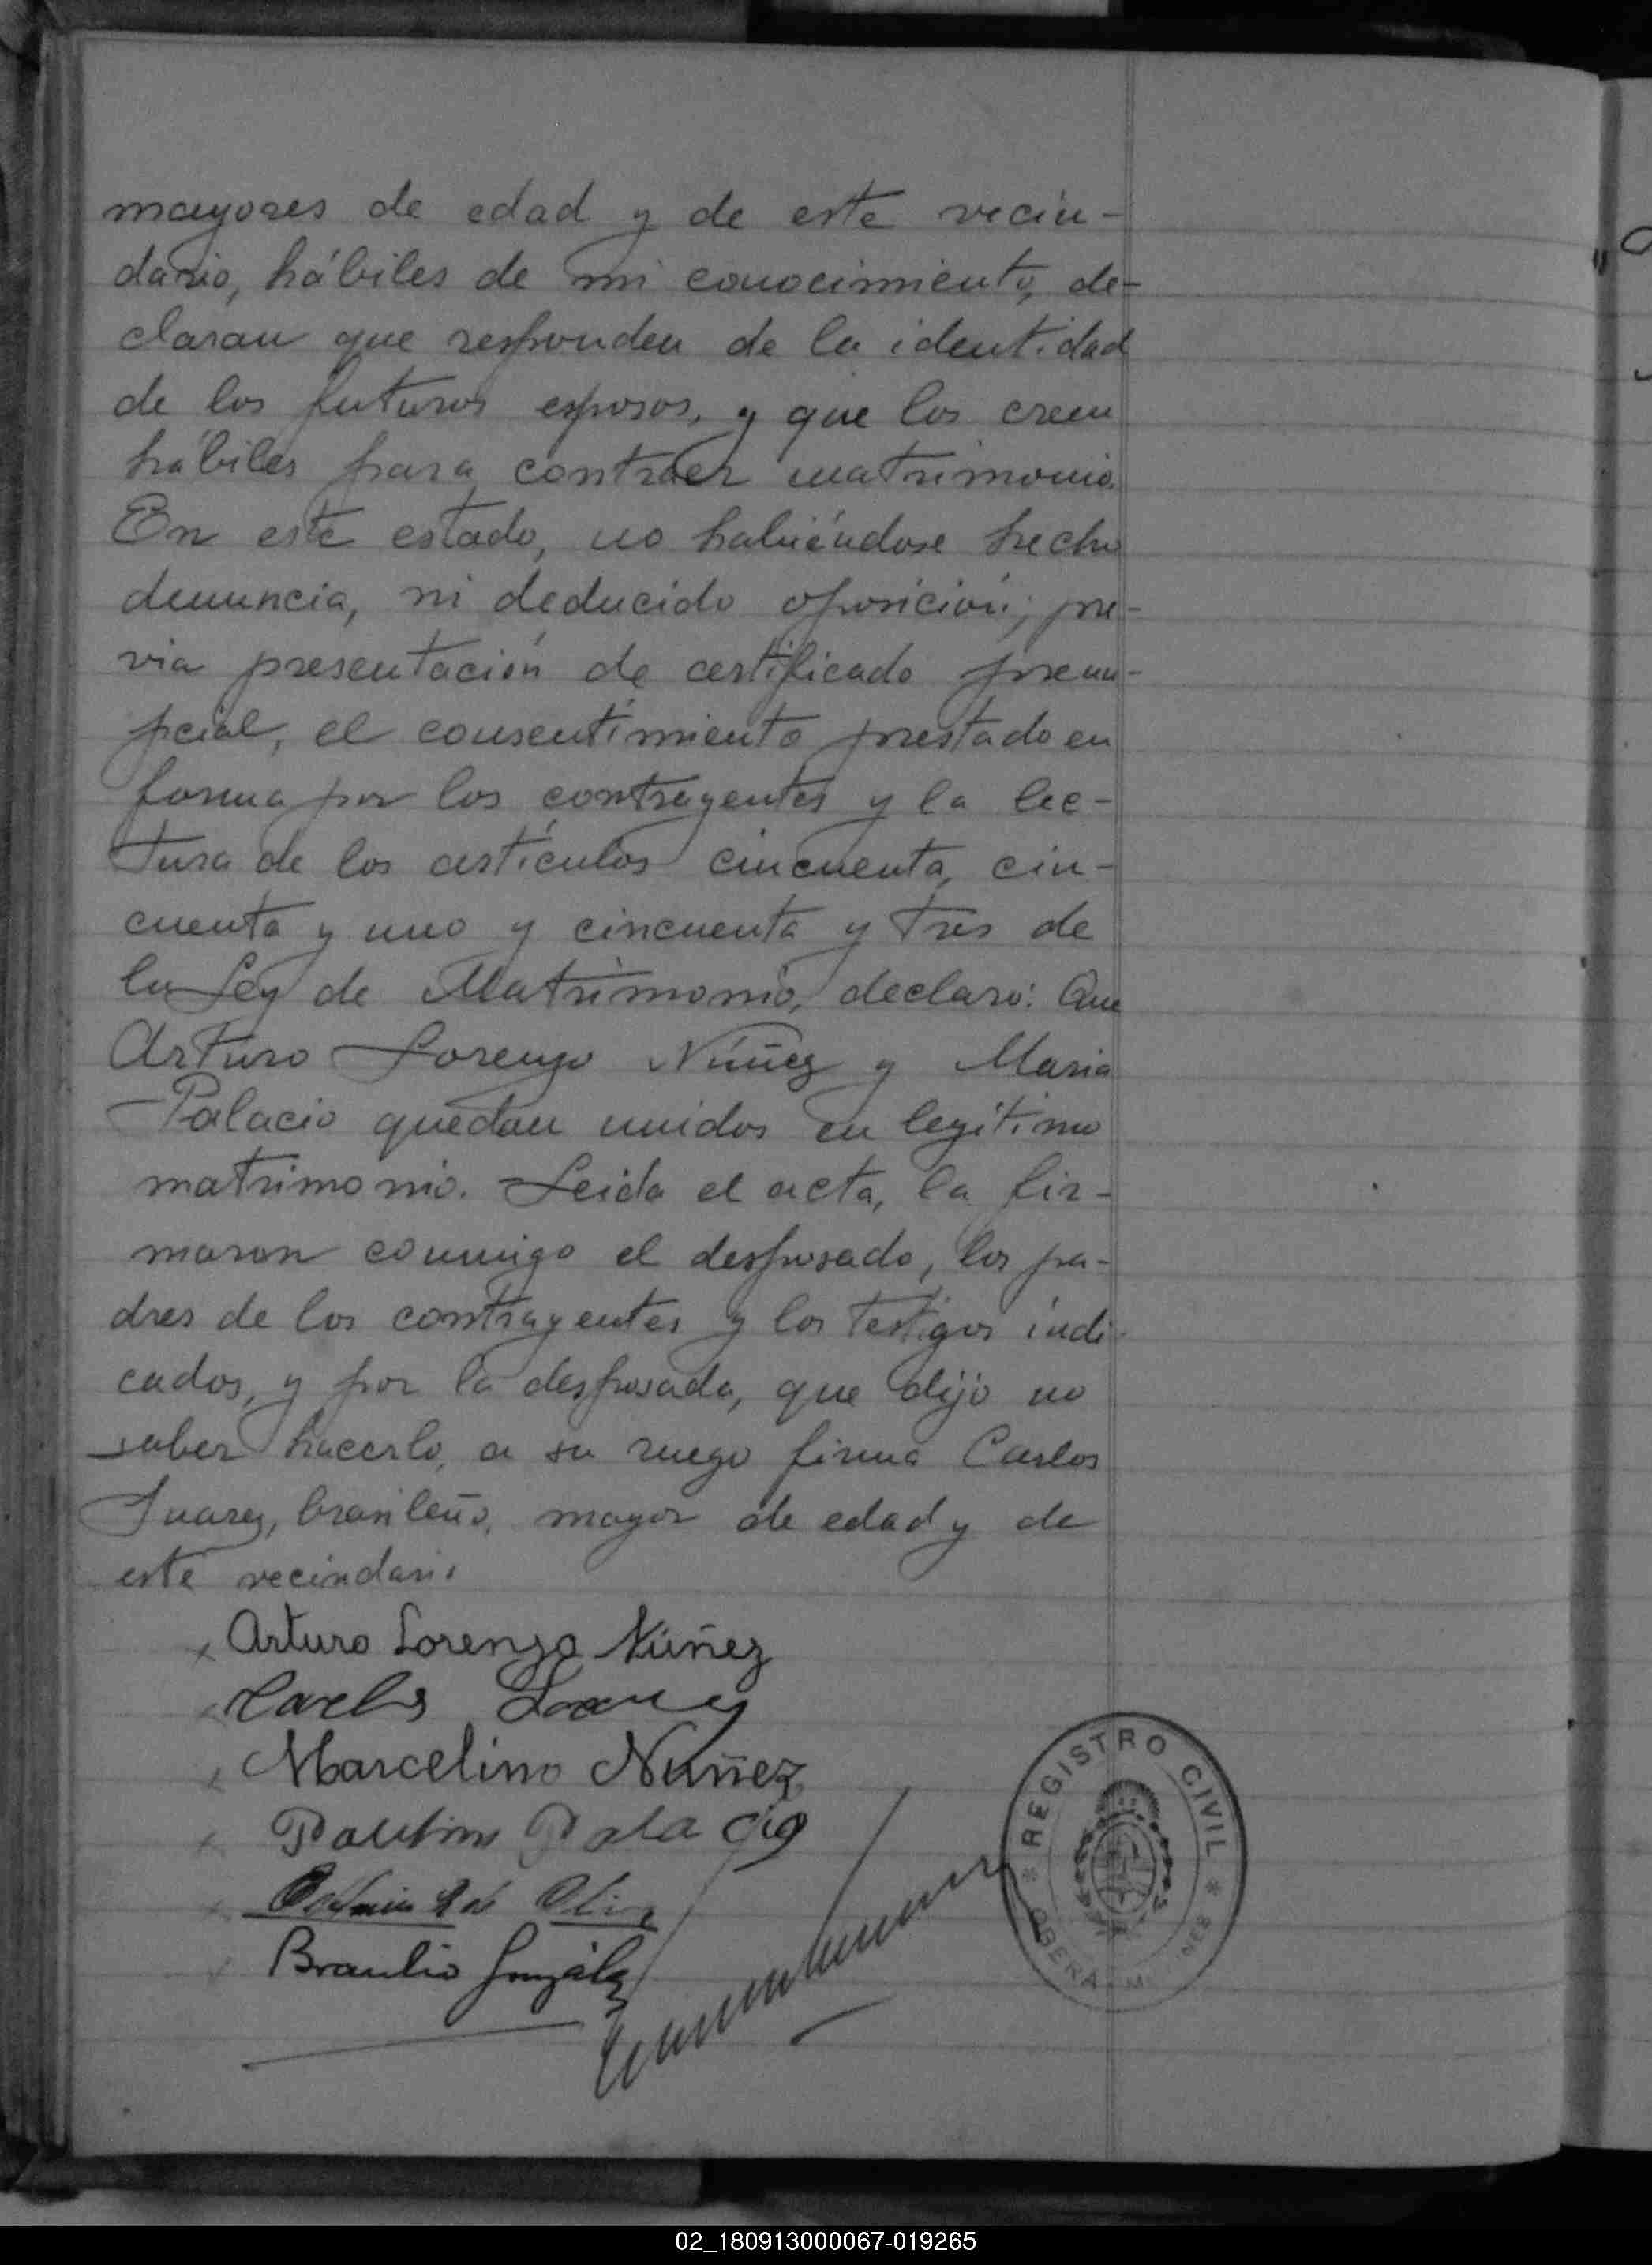 mayores de edad y de este vecin-
dario, hábiles de mi conocimiento, de-
claran que responden de la identidad
de los futuros esposos, y que los creen
hábiles para contraer matrimonio.
En este estado, no habiéndose hecho
denuncia, ni deducido oposición; pre-
via presentación de certificado prenu-
pcial, el consentimiento prestado en
forma por los contrayentes y la lec-
tura de los artículos cincuenta, cin-
cuenta y uno y cincuenta y tres de
la Ley de Matrimonio, declaro: Que
Arturo Lorenzo Núñez y Maria
Palacio quedan unidos en legítimo
matrimonio. Leida el acta, la fir-
maron conmigo el desposado, los pa-
dres de los contrayentes y los testigos indi-
cados, y por la desposada, que dijo no
saber hacerlo, a su ruego firma Carlos
Suarez, brasileño, mayor de edad y de
este vecindario
Arturo Lorenzo Núñez
Carlos
Marcelino Nuñez
Palacio
Braulio González
REGISTRO CIVIL
OBERA
02_180913000067-019265